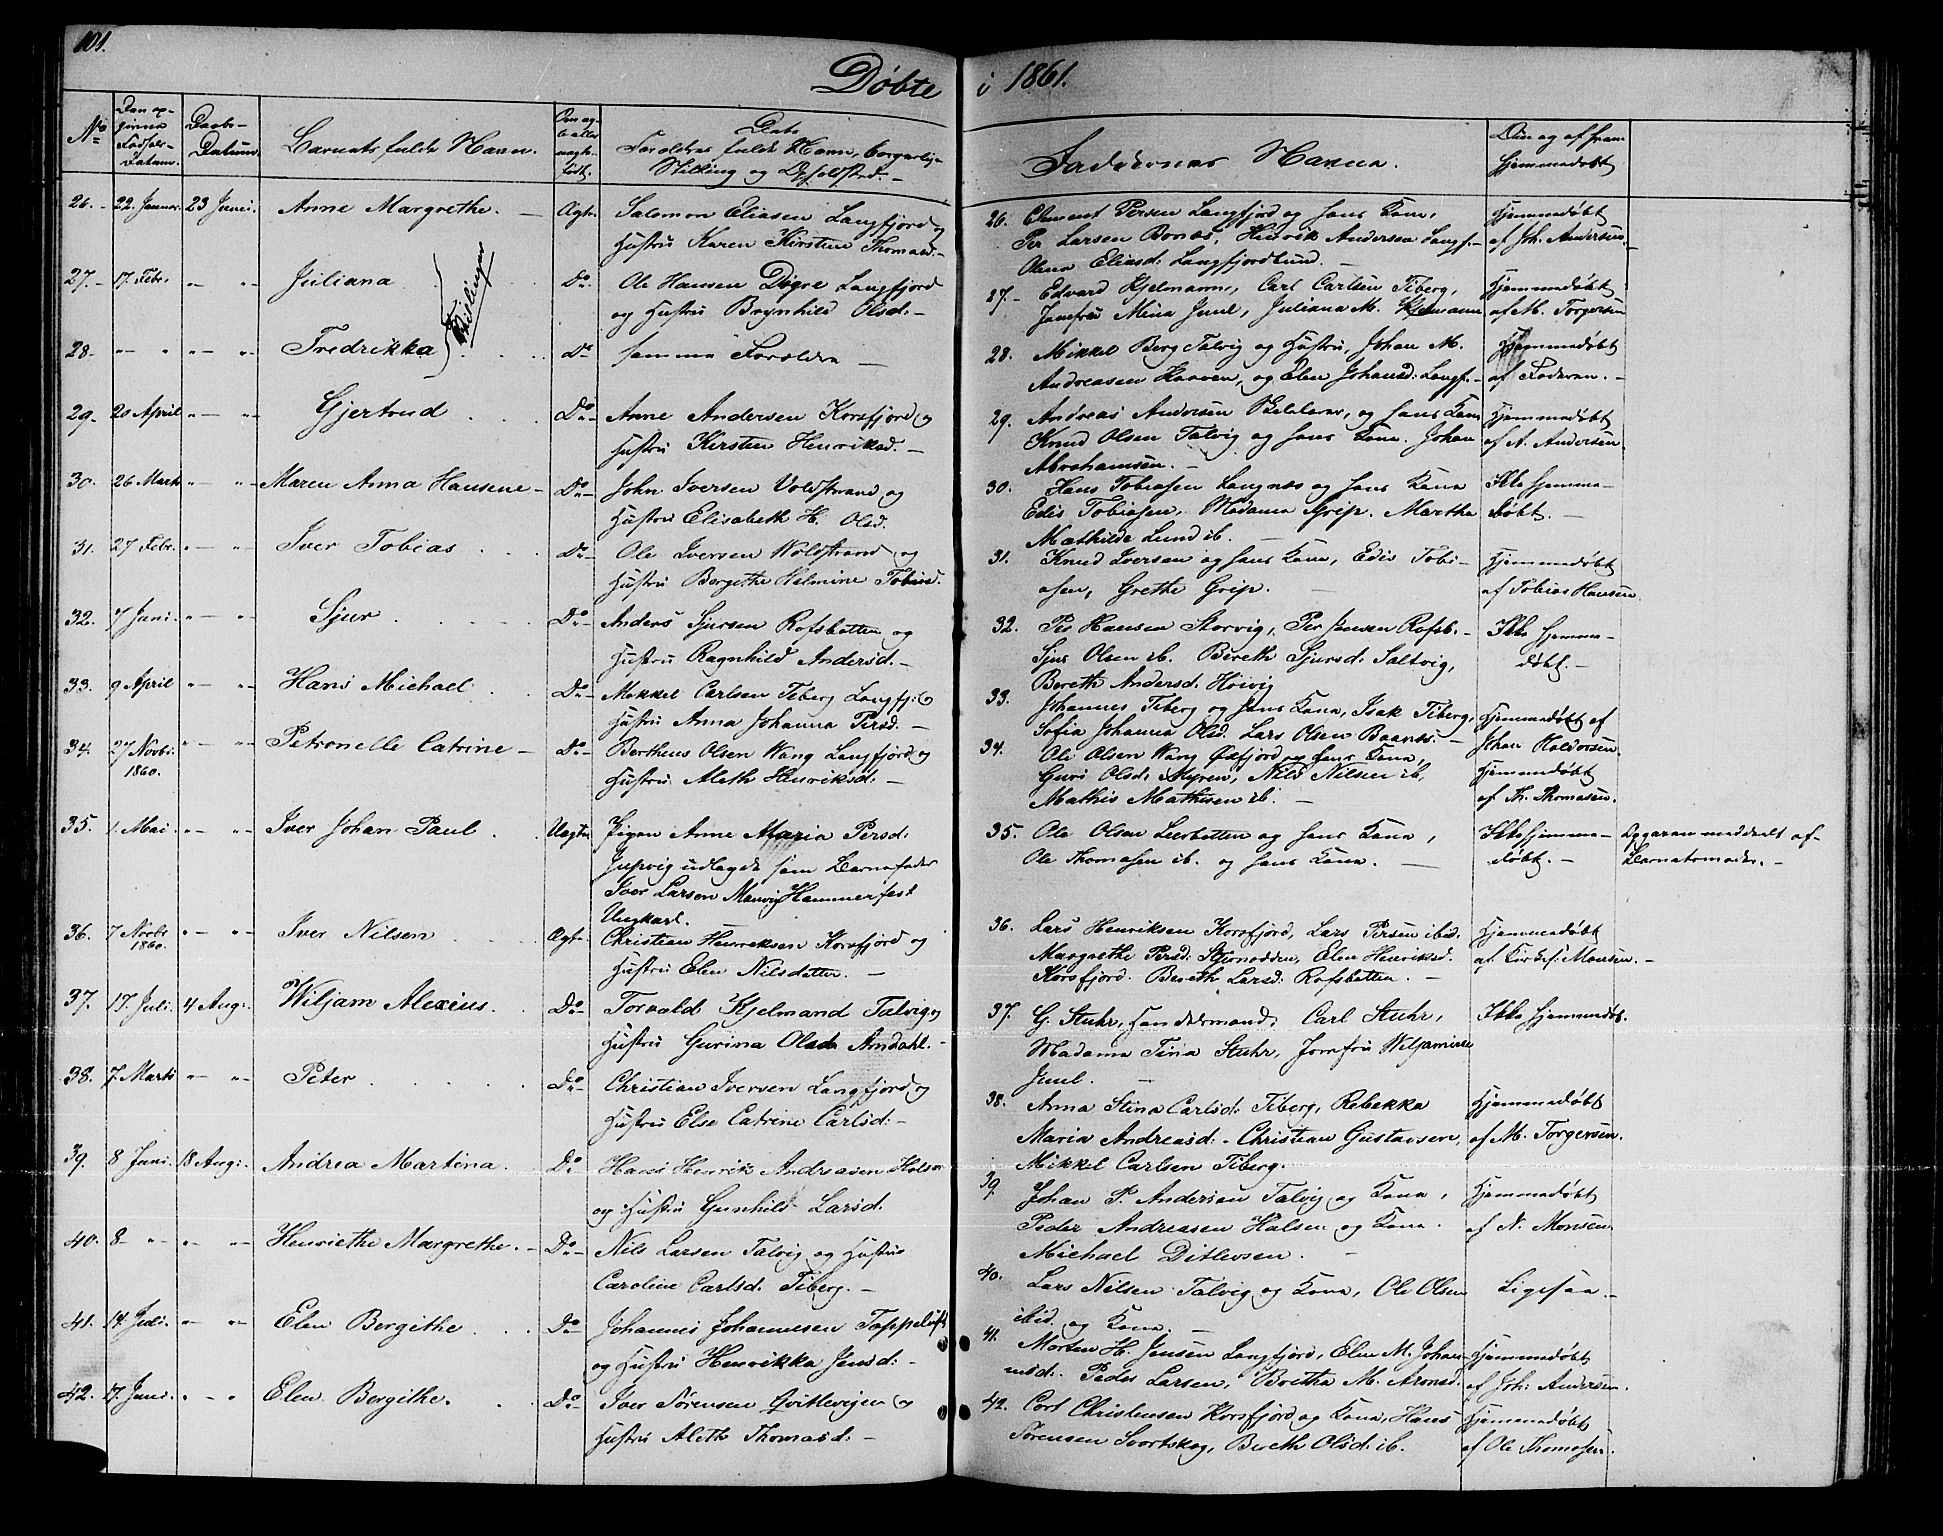 101.
Døbte i 1861.
No
Den op-
givne
Fødsels-
Datum.
Daabs-
Datum.
Barnets fulde Navn.
Om æg-
te eller
uægte
født.
Dets
Forældres fulde Navn, borgerlige
Stilling og Opholdsted.
Faddernes Navne.
Om og af hvem
hjemmedøbt
26. 22 Januar. 23 Juni. Anne Margrethe. Ægte Salomon Eliasen Langfjord og
Hustru Karen Kirstine Thomasd.
26. Clement Persen Langfjord og hans Kone,
Per Larsen Bonæs, Henrik Andersen Langf.
Olena Eliasd: Langfjordbund.
Hjemmedøbt
af Joh. Andersen.
27. 17 Febr. " " Juliana Tvilinger Do Ole Hansen Døgre Langfjord
og Hustru Brynhild Olsd:
27. Edvard Kjelmann, Carl Carlsen Tiberg,
Jomfru Mina Juul, Juliana M. Kjelmann
Hjemmedøbt
af M. Torgersen
28. " " " " Fredrikka Do samme Forældre
28. Mikkel Berg Talvig og Hustru, Johan M.
Andreasen Kaaven, og Elen Johansd: Langf.
Hjemmedøbt
af Faderen.
29. 20 April " " Gjertrud Do Arne Andersen Korsfjord og
Hustru Kirsten Henriksd.
29. Andreas Andersen og hans Kone
Knud Olsen Talvig og hans Kone. Johan
Abrahamsen.
Hjemmedøbt
af A. Andersen.
30. 26 Marts " " Maren Anna Hansine Do John Iversen Voldstrand og
Hustru Elisabeth H. Olsd.
30. Hans Tobiasen Langnes og hans Kone
Edis Tobiasen, Madame Grip. Marthe
Mathilde Lund ib.
Ikke hjemme-
døbt.
31. 27 Febr. " " Iver Tobias Do Ole Iversen Woldstrand og
Hustru Bergethe Helmine Tobiasd.
31. Knud Iversen og hans Kone, Edis Tobi-
asen, Grethe Grip.
Hjemmedøbt
af Tobias Hansen.
32. 7 Juni. " " Sjur Do Anders Sjursen Rofsbotten og
Hustru Ragnhild Andersd.
32. Per Hansen Storvig, Per Jensen Rofsb.
Sjur Olsen ib. Bereth Sjursd: Saltvig,
Bereth Andersd. Hoivig
Ikke hjemme-
døbt.
33. 9 April " " Hans Michael Do Mikkel Carlsen Tiberg Langfj: og
Hustru Anna Johanna Persd.
33. Johannes Tiberg og hans Kone, Isak Tiberg,
Sofia Johanna Olsd. Lars Olsen Baanes.
Hjemmedøbt af
Johan Haldorsen.
34. 27 Novbr.
1860. " " Petronelle Catrine Do Bertheus Olsen Wang Langfjord og
Hustru Aleth Henriksd:
34. Ole Olsen Wang Øxfjord og hans Kone,
Guri Olsd: Myren, Nils Nilsen ib.
Mathis Mathisen ib.
Hjemmedøbt
af Th. Thomasen.
35. 1. Mai. " " Iver Johan Paul Uægte Pigen Anne Maria Persd:
Jupvig udlagde som Barnefader
Iver Larsen Hammerfest
Ungkarl.
35. Ole Olsen Leerbotten og hans Kone,
Ole Thomasen ib. og hans Kone.
Ikke hjemme-
døbt.
Opgaven meddeelt af
Barnets moder.
36. 7 Novbr.
1860. " " Iver Nilsen Ægte Christian Henriksen Korsfjord og
Hustru Elen Nilsdatter.
36. Lars Henriksen Korsfjord, Lars Persen ibid.
Margrethe Persd: Stjernodden, Elen Henriksd.
Korsfjord. Bereth Larsd: Rofsbotten.
Hjemmedøbt
af Kirkes: Monsen.
37. 17. Juli. 4 Aug: Wiljam Alexius. Do Torvald Kjelmand Talvig og
Hustru Gurina Olsd. Amdahl.
37. G. Stuhr, Handelsmand, Carl Stuhr,
Madame Tina Stuhr, Jomfru Wiljamine
Juul.
Ikke hjemmedøb.
38. 7. Marts " " Peter Do Christian Iversen Langfjord og
Hustru Else Catrine Carlsd:
38. Anna Stina Carlsd: Tiberg, Rebekka
Maria Andreasd: Christian Gustavsen,
Mikkel Carlsen Tiberg.
Hjemmedøbt
af M. Torgersen.
39. 8 Juni. 18 Aug: Andrea Martina. Do Hans Henrik Andreasen Halsen
og Hustru Gunhild Larsd.
39 Johan P. Andersen Talvig og Kone,
Peder Andreasen Halsen og Kone.
Michael Ditlevsen.
Hjemmedøbt
af N. Monsen.
40. 8 " " " Henriethe Margrethe. Do Nils Larsen Talvig og Hustru
Caroline Carlsd. Tiberg.
40. Lars Nilsen Talvig og Kone, Ole Olsen
ibid. og Kone.
Ligesaa.
41. 14 Juli. " " Elen Bergithe Do Johannes Johannesen Tappeluft
og Hustru Henrikka Jensd:
41. Morten H. Jensen Langfjord, Elen M. Johan-
nesd. Peder Larsen, Britha M. Aronsd.
Hjemmedøbt
af Joh: Andersen.
42. 17. Juni. " " Elen Bergithe. Do Iver Sørensen Qvittevigen og
Hustru Aleth Thomasd:
42. Cort Christensen Korsfjord og Kone, Hans
Sørensen Svortskog, Bereth Olsd: ib.
Hjemmedøbt
af Ole Thomasen.